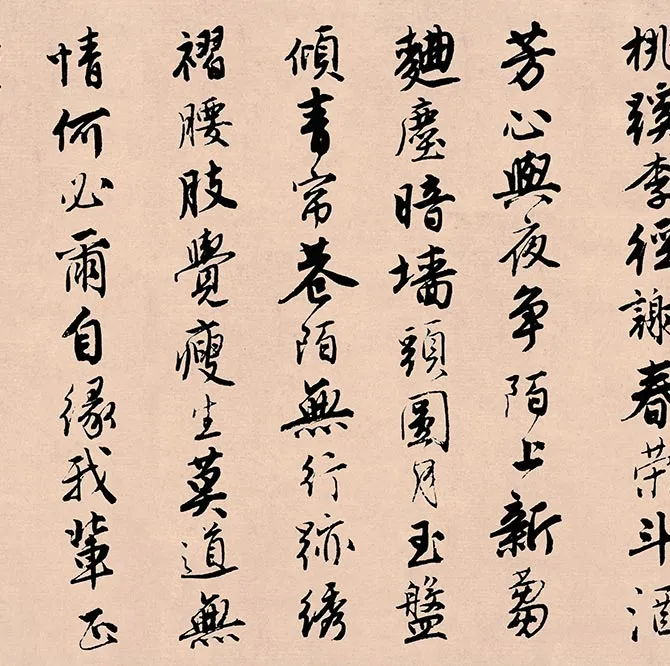 桃蹊李徑謝春荣斗酒
芳心與夜争陌上新蒭
麯塵暗墻頭圓月玉盤
傾青帘巷陌無行跡綉
褶腰肢覺瘦生莫道無
情何必爾自緣我輩正